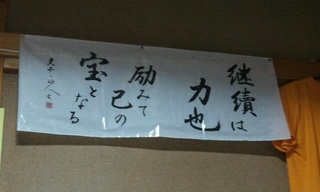 継續は
力也
励みて
己の
宝となる